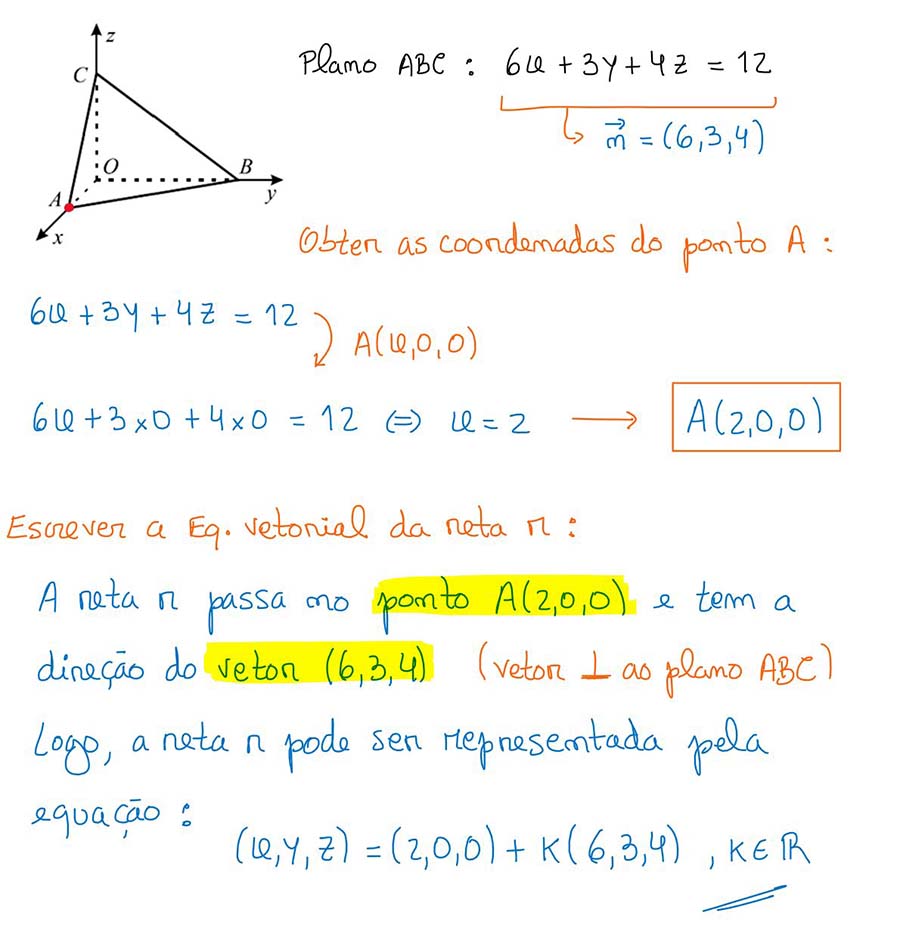 z
C
O
B
A
y
x
Plano ABC : 6x + 3y + 4z = 12
n⃗ = (6,3,4)
Obter as coordenadas do ponto A :
6x + 3y + 4z = 12
A(x,0,0)
6x + 3×0 + 4×0 = 12 (=) x = 2 → A(2,0,0)
Escrever a Eq. vetorial da reta r :
A reta r passa no ponto A(2,0,0) e tem a
direção do vetor (6,3,4) (vetor ⊥ ao plano ABC)
Logo, a reta r pode ser representada pela
equação :
(x,y,z) = (2,0,0) + K(6,3,4) , K∈ℝ